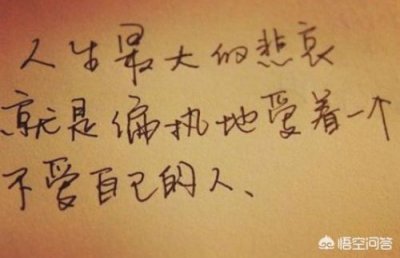 人生最大的悲哀
就是偏执地爱着一个
不爱自己的人、
悟空问答